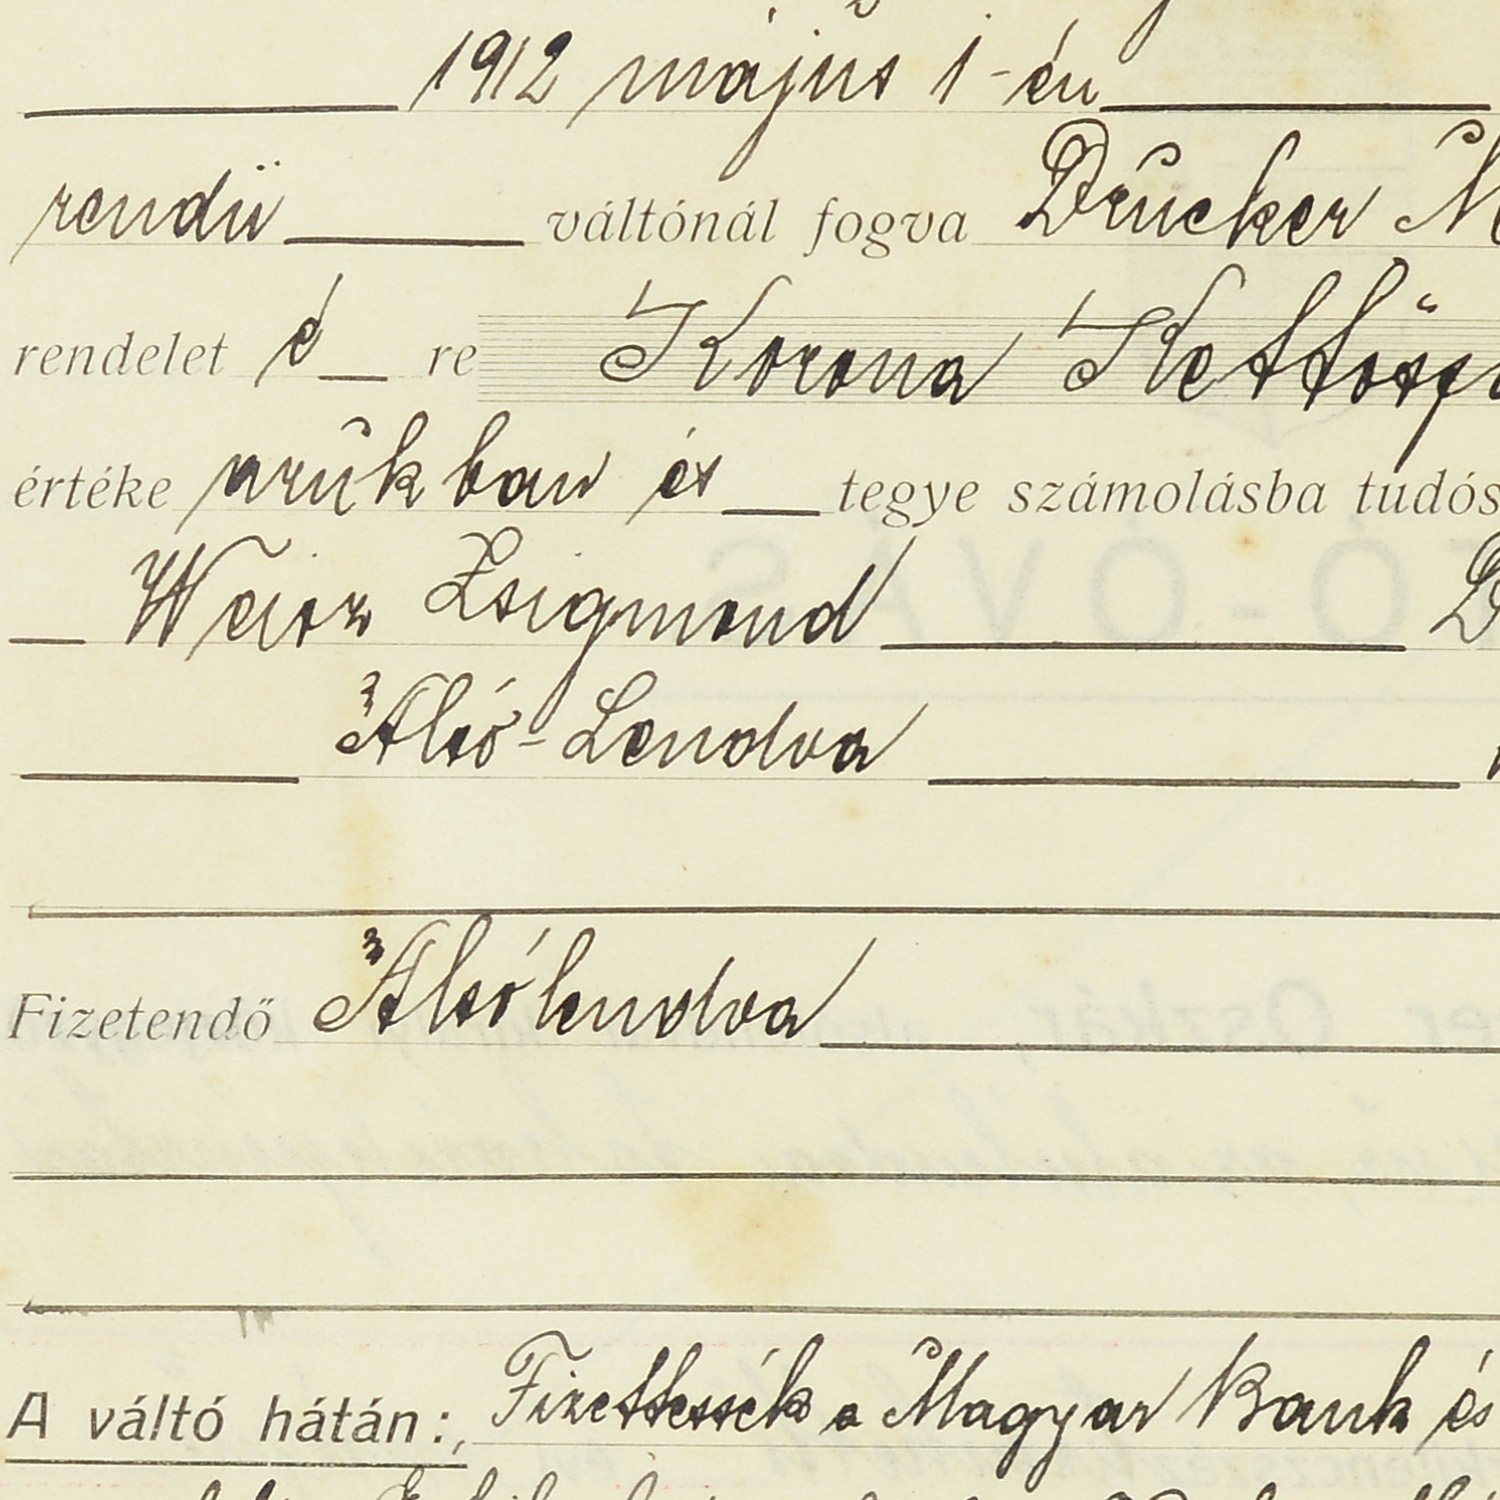 1912 május 1-én
rendü váltónál fogva Drucker M
rendelet é re Korona Kettősz
értéke árúkban és tegye számolásba tudós
Weisz Zsigmond D
Alsó-Lendva
Fizetendő Alsólendva
A váltó hátán: Fizettessék a Magyar Bank és